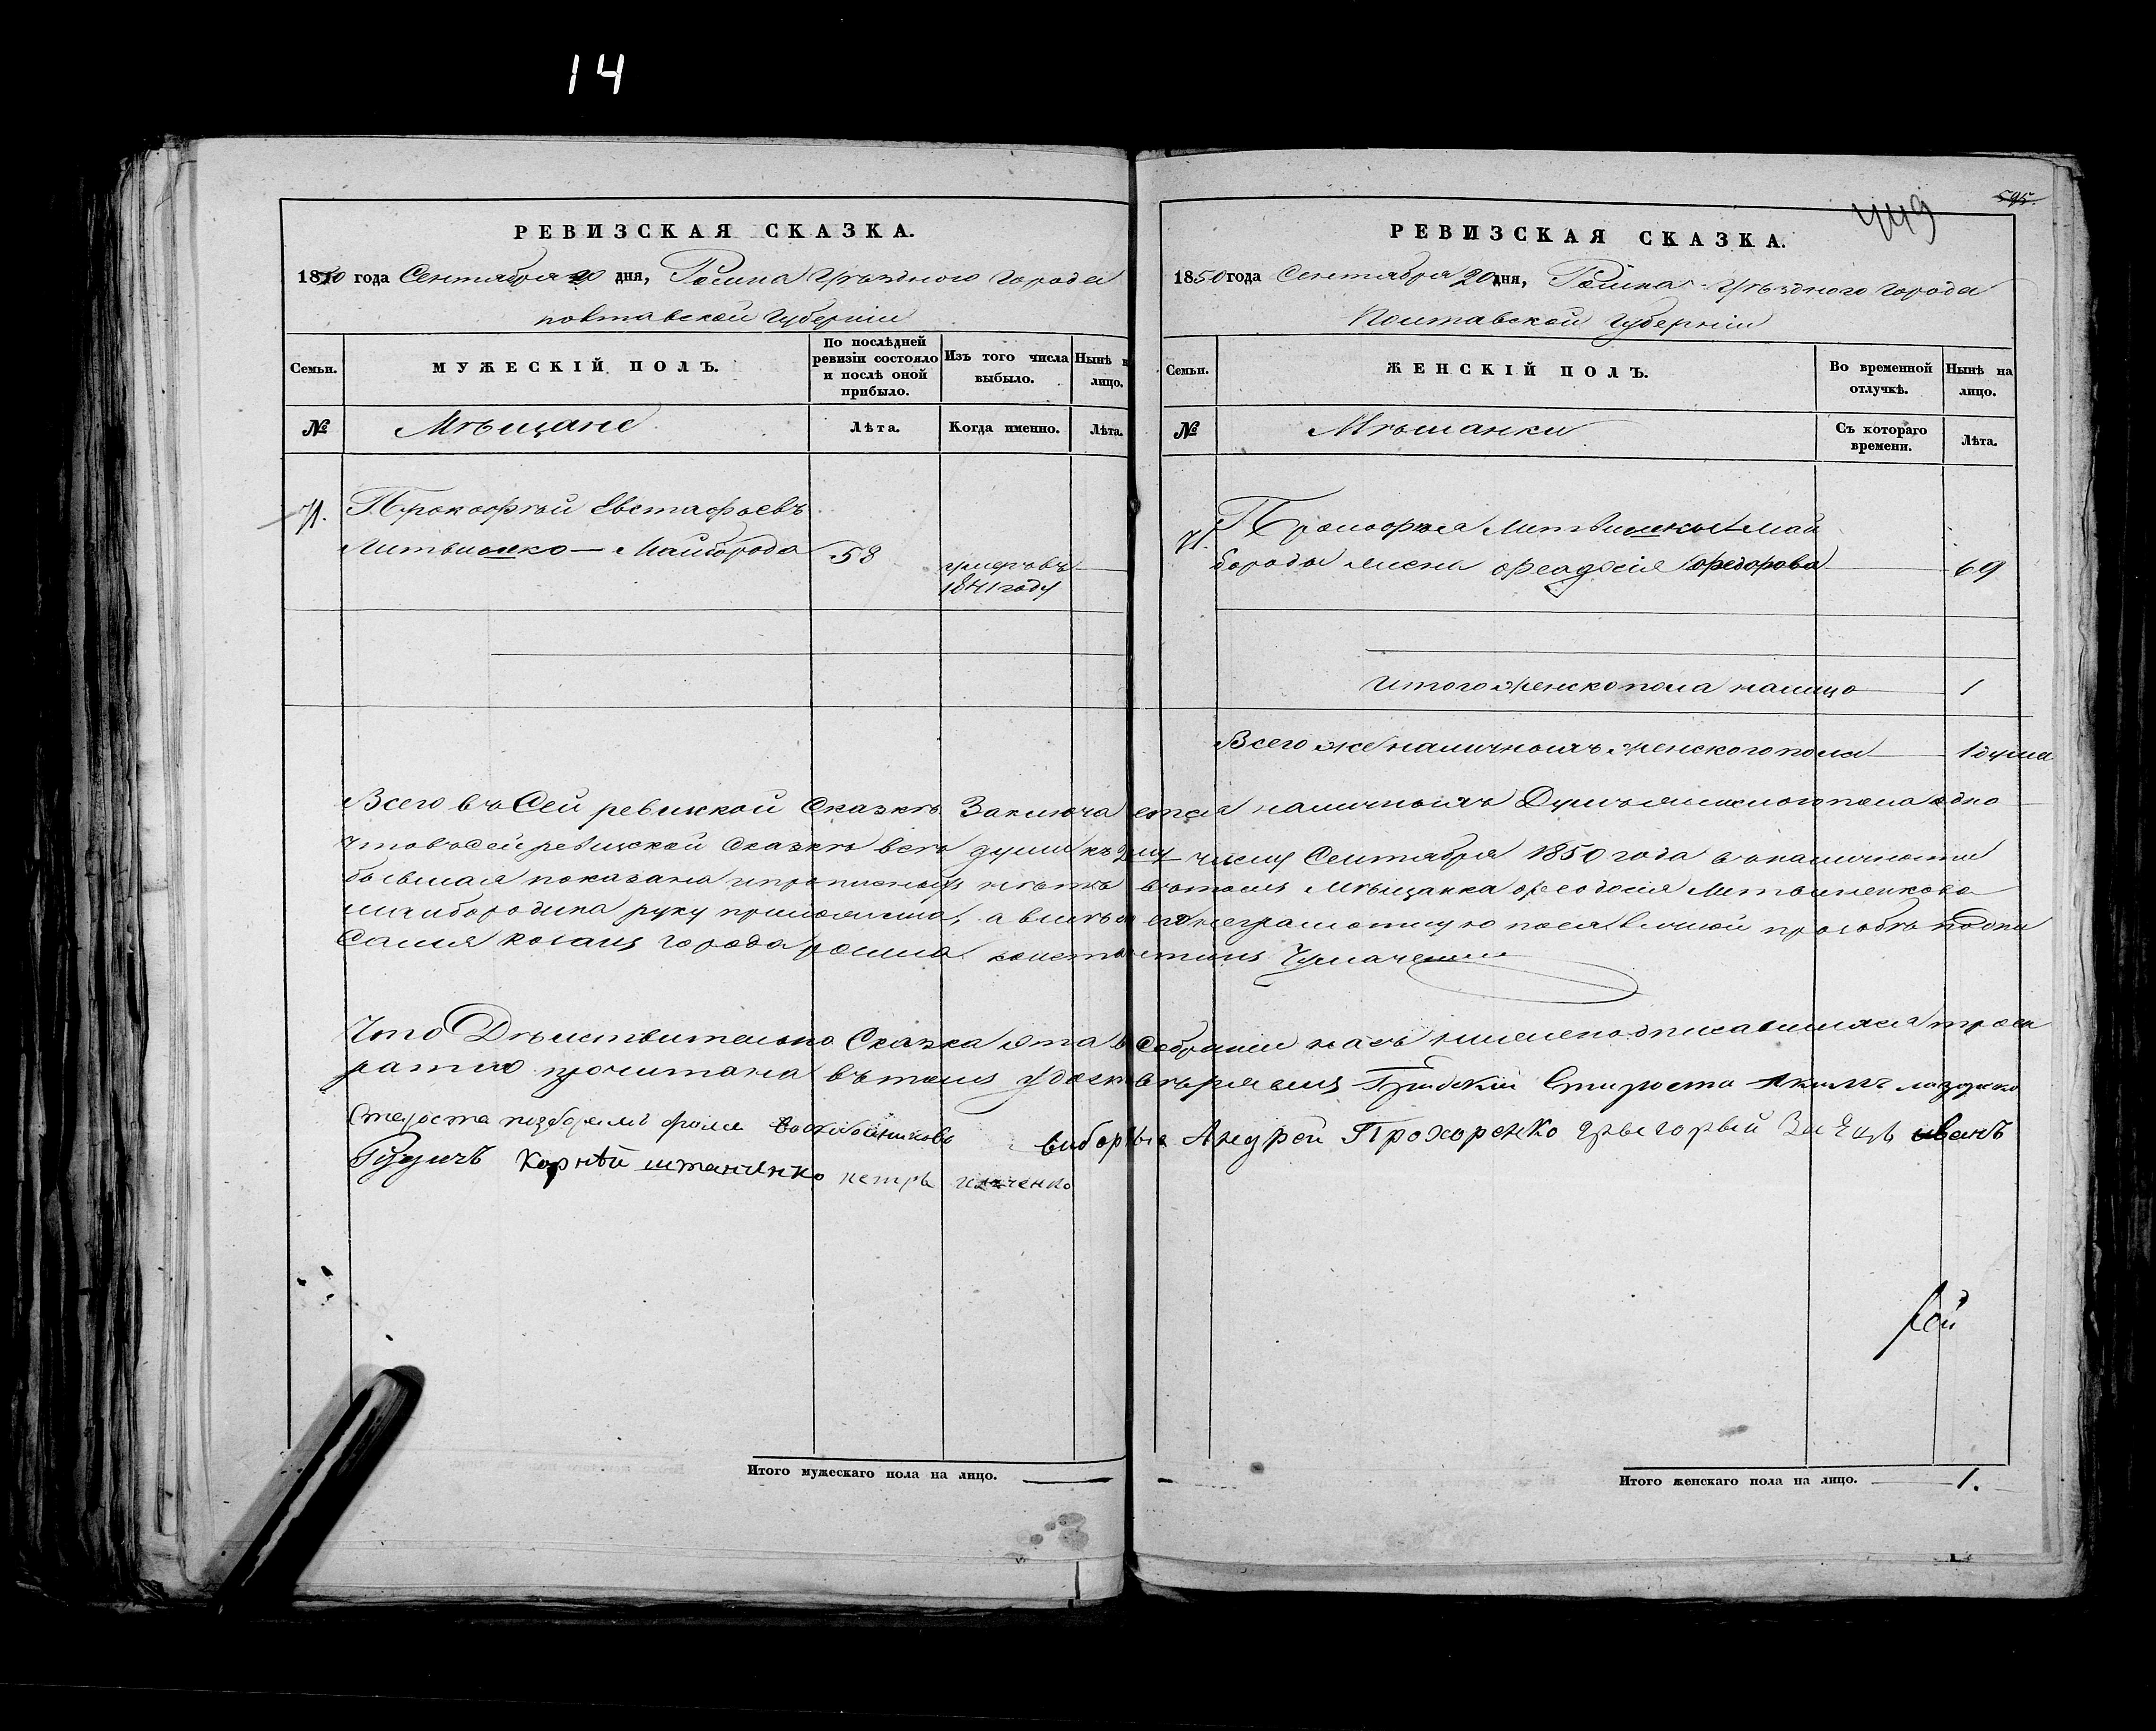 14
РЕВИЗСКАЯ СКАЗКА.
1850 года Сентября 20 дня, Ромна Уѣздного Города
полтавской Губерніи
Семьи.
МУЖЕСКІЙ ПОЛЪ.
По послѣдней ревизіи состояло и послѣ оной прибыло.
Изъ того числа выбыло.
Нынѣ на лицо.
№
Мѣщане
Лѣта.
Когда именно.
Лѣта.
Прокофѣй Евстафьевъ
Литвиненко — Майборода 58
умеръ въ
1841 году
449
595.
РЕВИЗСКАЯ СКАЗКА.
1850 года Сентября 20 дня, Ромна Уѣздного Города
Полтавской Губерніи
Семьи.
ЖЕНСКІЙ ПОЛЪ.
Во временной отлучкѣ.
Нынѣ на лицо.
№
Мѣщанки
Съ котораго времени.
Лѣта.
Прокофья Май
бороды жена Феодосія Федорова 69
Итого женско пола налицо 1
Всего же наличныхъ женского пола 1 душа
Всего въ Сей ревизкой Сказкѣ Заключается наличныхъ Душъ женского пола одна
Что въ сей ревизской Сказкѣ всѣ души къ числу Сентября 1850 года въ наличности
бывшая показана и прописных нѣтъ въ томъ Мѣщанка Феодосія Литвиненкова
Майбородина руку приложила, а вмѣсто ея неграмотную по ея личной прозбѣ подпи
Сался козакъ города Ромна Константинъ
Что Дѣйствительно Сказка эта въ Собраніи насъ нижеподписавшихся трое
ратно прочитана въ томъ удостовѣряемъ Градскій Староста
Староста выборные Андрей Прохоренко Григорый Заецъ иванъ
Корнѣй штаненко петръ
Итого мужескаго пола на лицо. —
Итого женскаго пола на лицо. — 1.